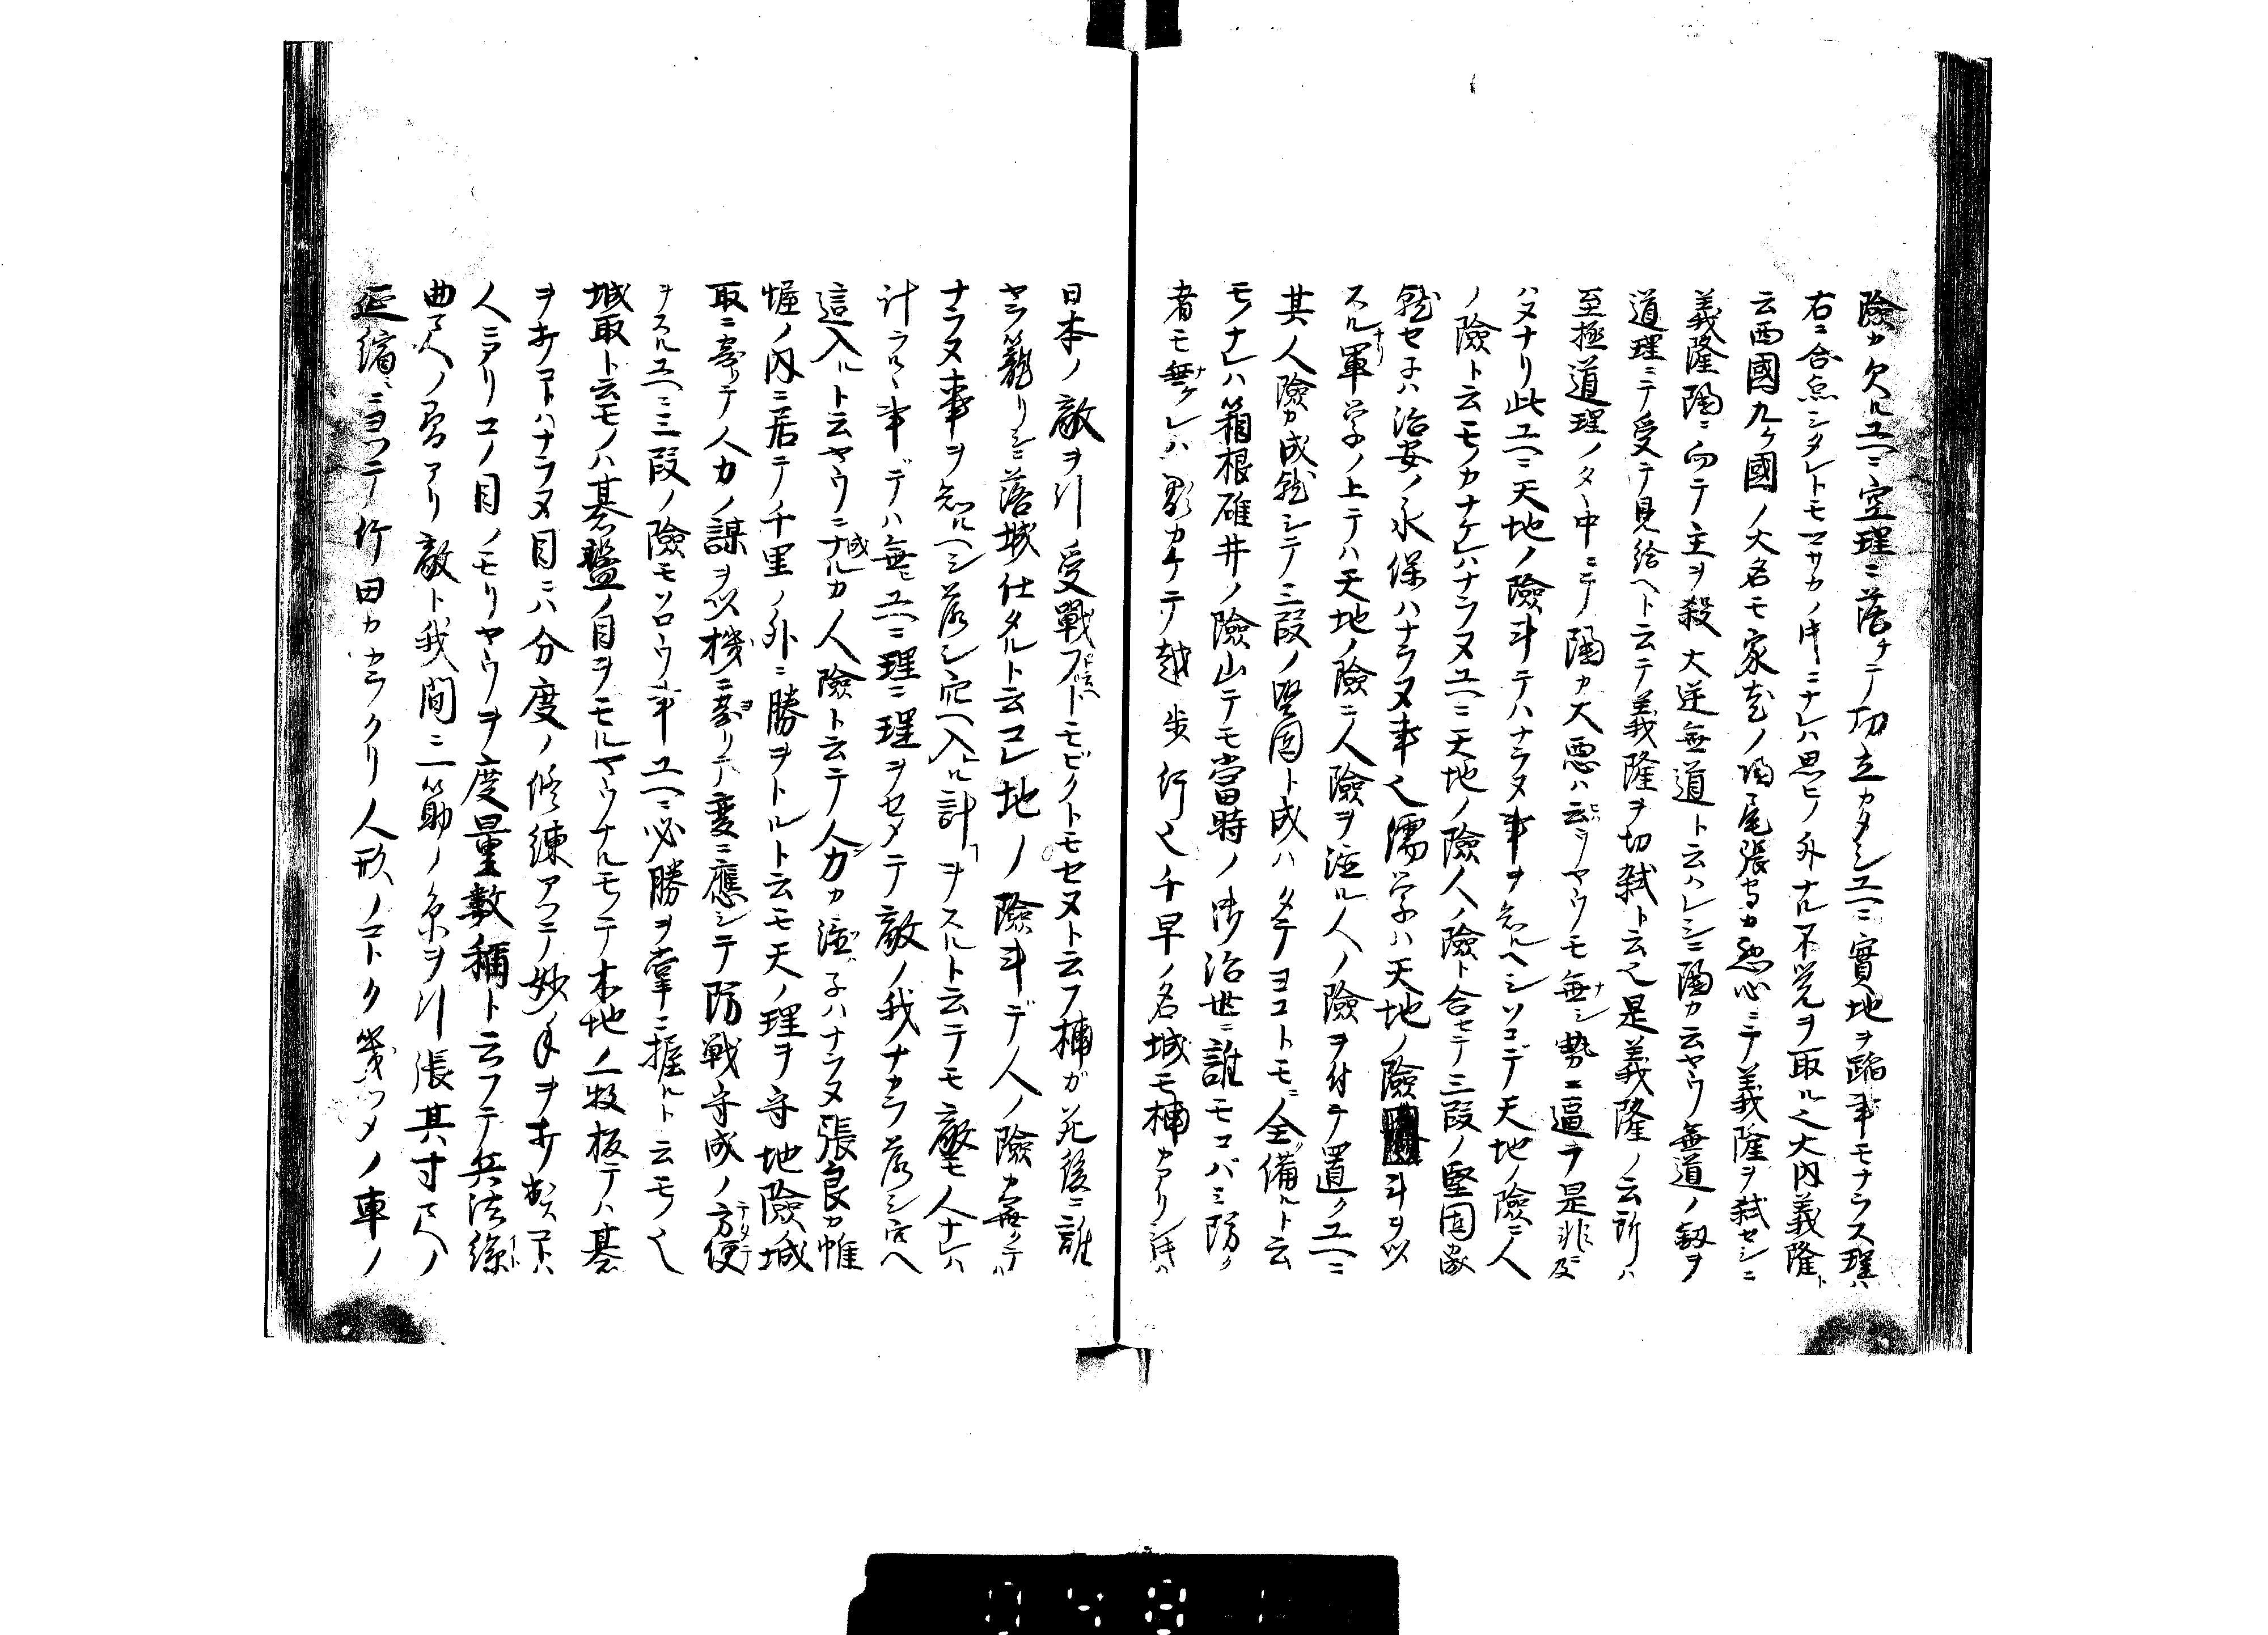 險カ欠ルユヘニ空理ニ落チテ切立カタシユヘニ實地ヲ踏事モナラス理ハ
右ニ合点シタレトモマサカノ時ニナレハ思ヒノ外ナル不覚ヲ取ル也大内義隆ト
云西國九ケ國ノ大名モ家老ノ陶尾張守カ悪心ニテ義隆ヲ弑セシニ
義隆陶ニ向テ主ヲ殺大逆無道ト云ハレシニ陶カ云ヤウ無道ノ釼ヲ
道理ニテ受テ見給ヘト云テ義隆ヲ切弑ト云也是義隆ノ云所ハ
至極道理ノタヽ中ニテノ陶カ大悪ハ云ウヤウモ無シ勢ニ逼テ是非ニ及
ハヌナリ此ユヘニ天地ノ險斗テハナラヌ事ヲ知ルヘシソコデ天地ノ險ニ人
ノ險ト云モノカナケレハナラヌユヘニ天地ノ險人ノ險ト合セテ三段ノ堅固
就セネハ治安ノ永保ハナラヌ事也儒学ハ天地ノ險斗ヲ以
スルナリ軍学ノ上テハ天地ノ險ニ人險ヲ注ル人ノ險ヲ付テ置クユヘニ
其人險カ成就シテ三段ノ堅固ト成ハタテヨコトモニ全備ルト云
モノナレハ箱根碓井ノ險山テモ當時ノ御治世ニ誰モコバミ防ク
者モ無ケレハ影カチテ越歩行也千早ノ名城モ楠カアリシ時ハ
日本ノ敵ヲ引受戰フトモビクトモセヌト云フ楠ガ死後ニ誰
ヤラ籠リシニ落城仕タルト云コレ地ノ險斗デ人ノ險カ無クテハ
ナラヌ事ヲ知ルヘシ落シ穴ヘ入ル計ヲスルト云テモ敵モ人ナレハ
計ラルヽ事デハ無ヒユヘニ理ニ理ヲセメテ敵ノ我ナカラ落シ穴ヘ
這入ルト云ヤウニナルカ人險ト云テノ人力カ注ネハナラヌ張良カ帷
幄ノ内ニ居テノ千里ノ外ニ勝ヲトルト云モ天ノ理ヲ守地險城
取ニ寄リテノ人カノ謀ヲ以機ニ寄リテ変ニ應シテ防戦守成ノ方便
ヲスルユヘニ三段ノ險モソロウ事ユヘニ必勝ヲ掌ニ握ルト云モノ也
城取ト云モノハ碁盤ノ目ヲモルヤウナルモノテ木地ノ一枚板テハ碁
ヲ打コトハナラヌ目ニハ分度ノ修練アツテ妙手ヲ打出スコトハ
人ニアリコノ目ノモリヤウヲ度量数稱ト云フテ兵法
曲尺ノ習アリ敵ト我間ニ一筋ノ糸ヲ引張其寸尺ノ
延縮ニヨツテノ行田カカラクリ人形ノコトク幾ツメノ車ノ